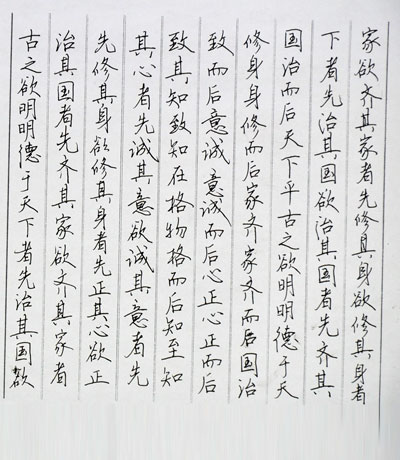 古之欲明明德于天下者先治其国欲
治其国者先齐其家欲齐其家者
先修其身欲修其身者先正其心欲正
其心者先诚其意欲诚其意者先
致其知致知在格物格而后知至知
致而后意诚意诚而后心正心正而后
修身身修而后家齐家齐而后国治
国治而后天下平古之欲明明德于天
下者先治其国欲治其国者先齐其
家欲齐其家者先修其身欲修其身者